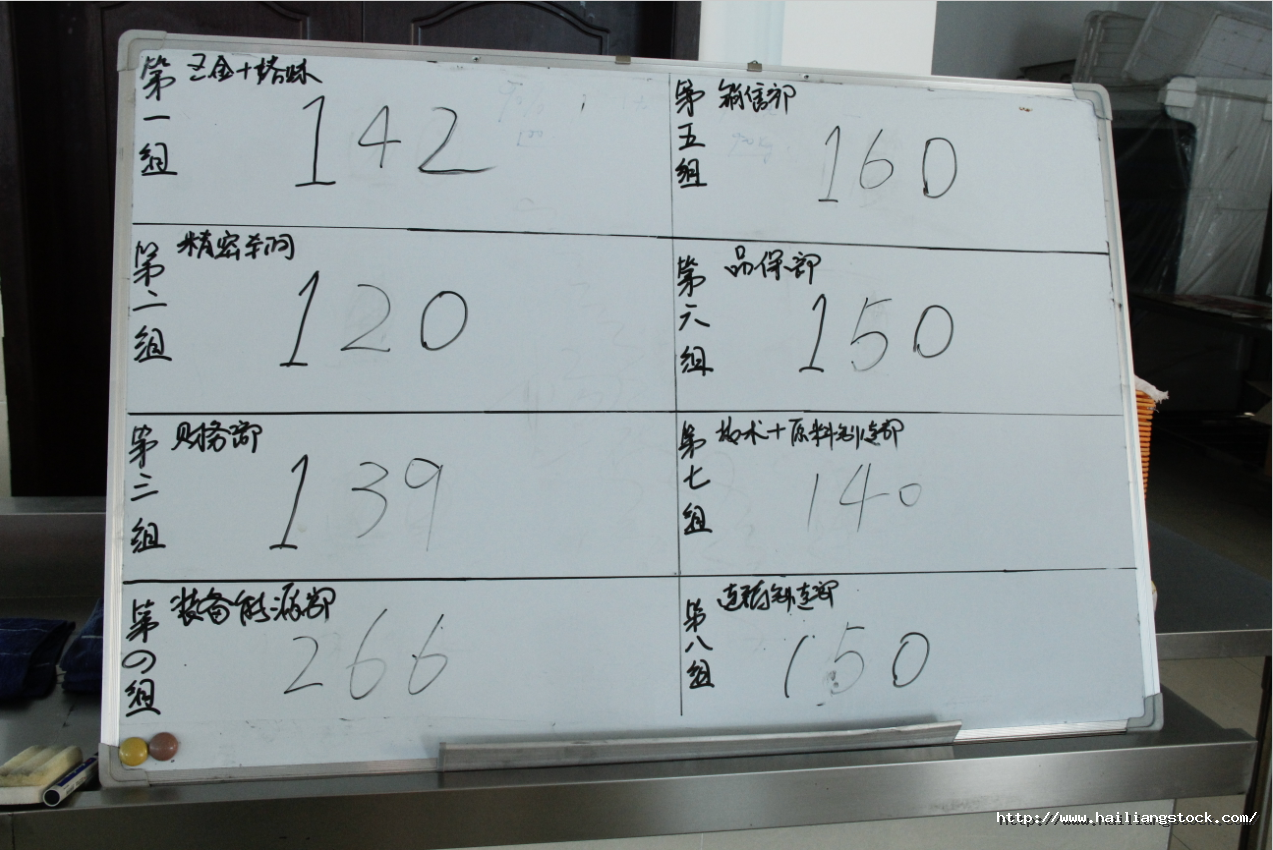 第一组
142
第二组
120
第三组
财务部
139
第四组
装备能源部
266
第五组
销售部
160
第六组
品保部
150
第七组
技术+原料制造部
140
第八组
150
http://www.hailiangstock.com/